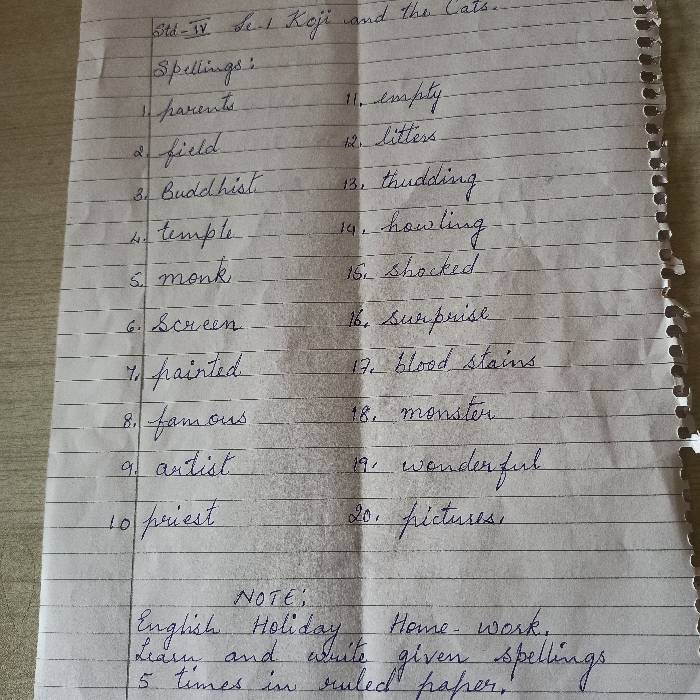 Std - IV Le. 1 Koji and the Cats.
Spellings:
1. parents
2. field
3. Buddhist
4. temple
5. monk
6. Screen
7. painted
8. famous
9. artist
10 priest
11. empty
12. litters
13. thudding
14. howling
15. shocked
16. surprise
17. blood stains
18. monster
19. wonderful
20. pictures.
NOTE:
English Holiday Home-work.
Learn and write given spellings
5 times in ruled paper.